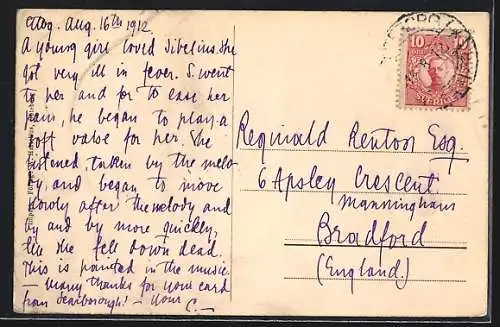 Aug. Aug. 16th 1912.
A young girl loved Sibelius. She
got very ill in fever. S. went
to her and for to ease her
pain, he began to play a
soft valse for her. She
listened, taken by the melo-
dy, and began to move
slowly after the melody and
by and by more quickly,
till she fell down dead.
This is painted in the music.
– Many thanks for your card
from Scarborough! – Your
C.–
10
Reginald Renton Esq.
6 Apsley Crescent
Manningham
Bradford
(England.)